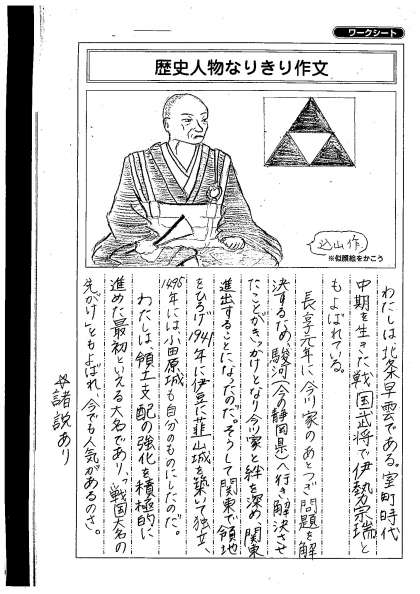 ワークシート
歴史人物なりきり作文
込山作
※似顔絵をかこう
わたしは北条早雲である。室町時代
中期を生きた戦国武将で伊勢宗瑞と
もよばれている。
長享元年に今川家のあとつぎ問題を解
決するため、駿河(今の静岡県)へ行き解決させ
たことがきっかけとなり今川家と絆を深め関東
進出することになったのだ。そうして関東で領地
をひろげ1941年に伊豆に韮山城を築いて独立、
1495年には小田原城も自分のものにしたのだ。
わたしは、領土支配の強化を積極的に
進めた最初といえる大名であり、「戦国大名の
先がけ」ともよばれ、今でも人気があるのさ。
※諸説あり